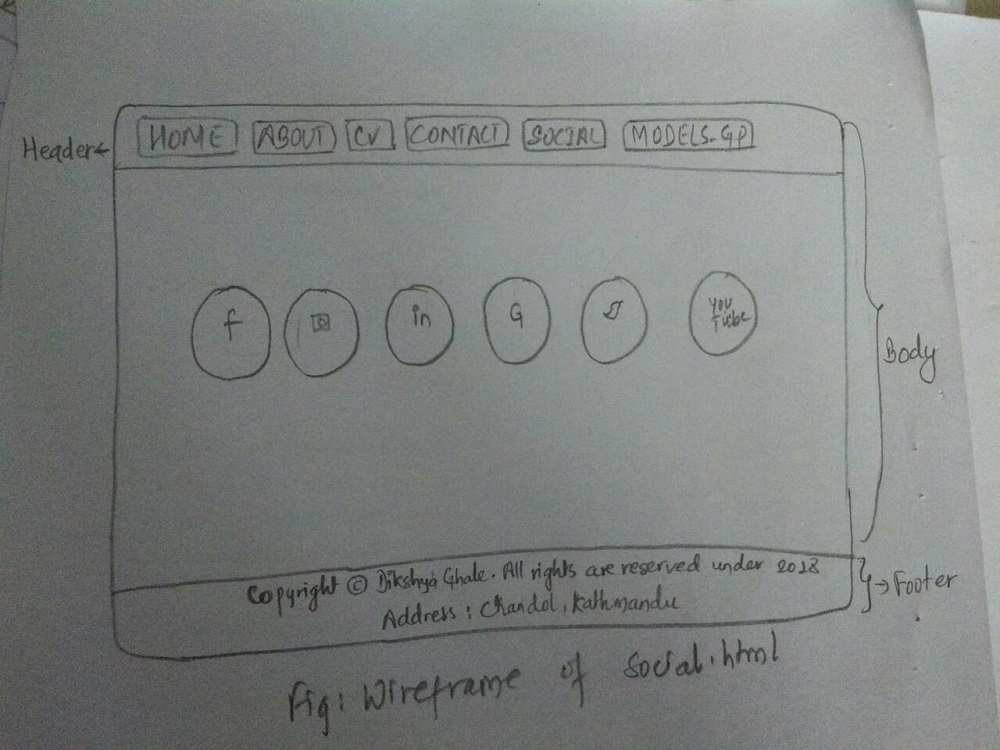 Header
HOME ABOUT CV CONTACT SOCIAL MODELS.GP
f in G You Tube
Body
Copyright © Dikshya Ghale. All rights are reserved under 2018
Address : Chandol, Kathmandu
Footer
Fig: Wireframe of social.html